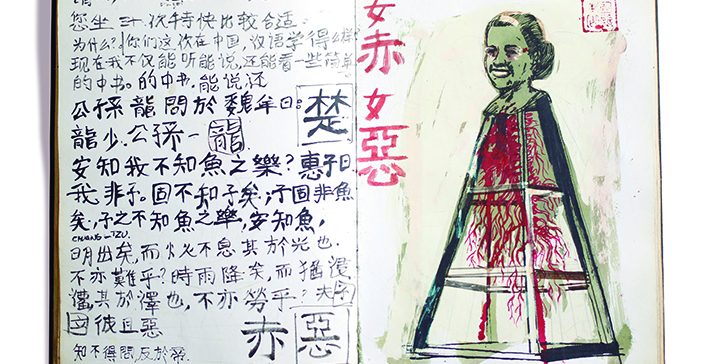 您坐三十次特快比较合适.
为什么？你们这次在中国，汉语学得怎么样？
现在我不仅能听能说，还能看一些简单
的中书。的中书。能说还
公孫龍問於魏年曰：
楚
龍少.公孫一龍
安知我不知魚之樂？惠子曰
我非子。固不知子矣；子固非魚
矣，子之不知魚之樂，安知魚，
CHUANG-TZU.
日月出矣，而火不息其於光也.
不亦難乎？時雨降矣，而猶浸
灌，其於澤也，不亦勞乎？
國彼且惡
赤惡
知不得問反於
女赤女惡